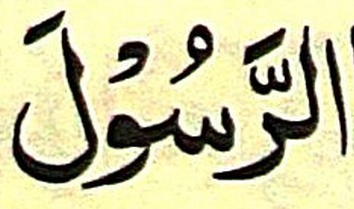 الرَّسُوْلَ